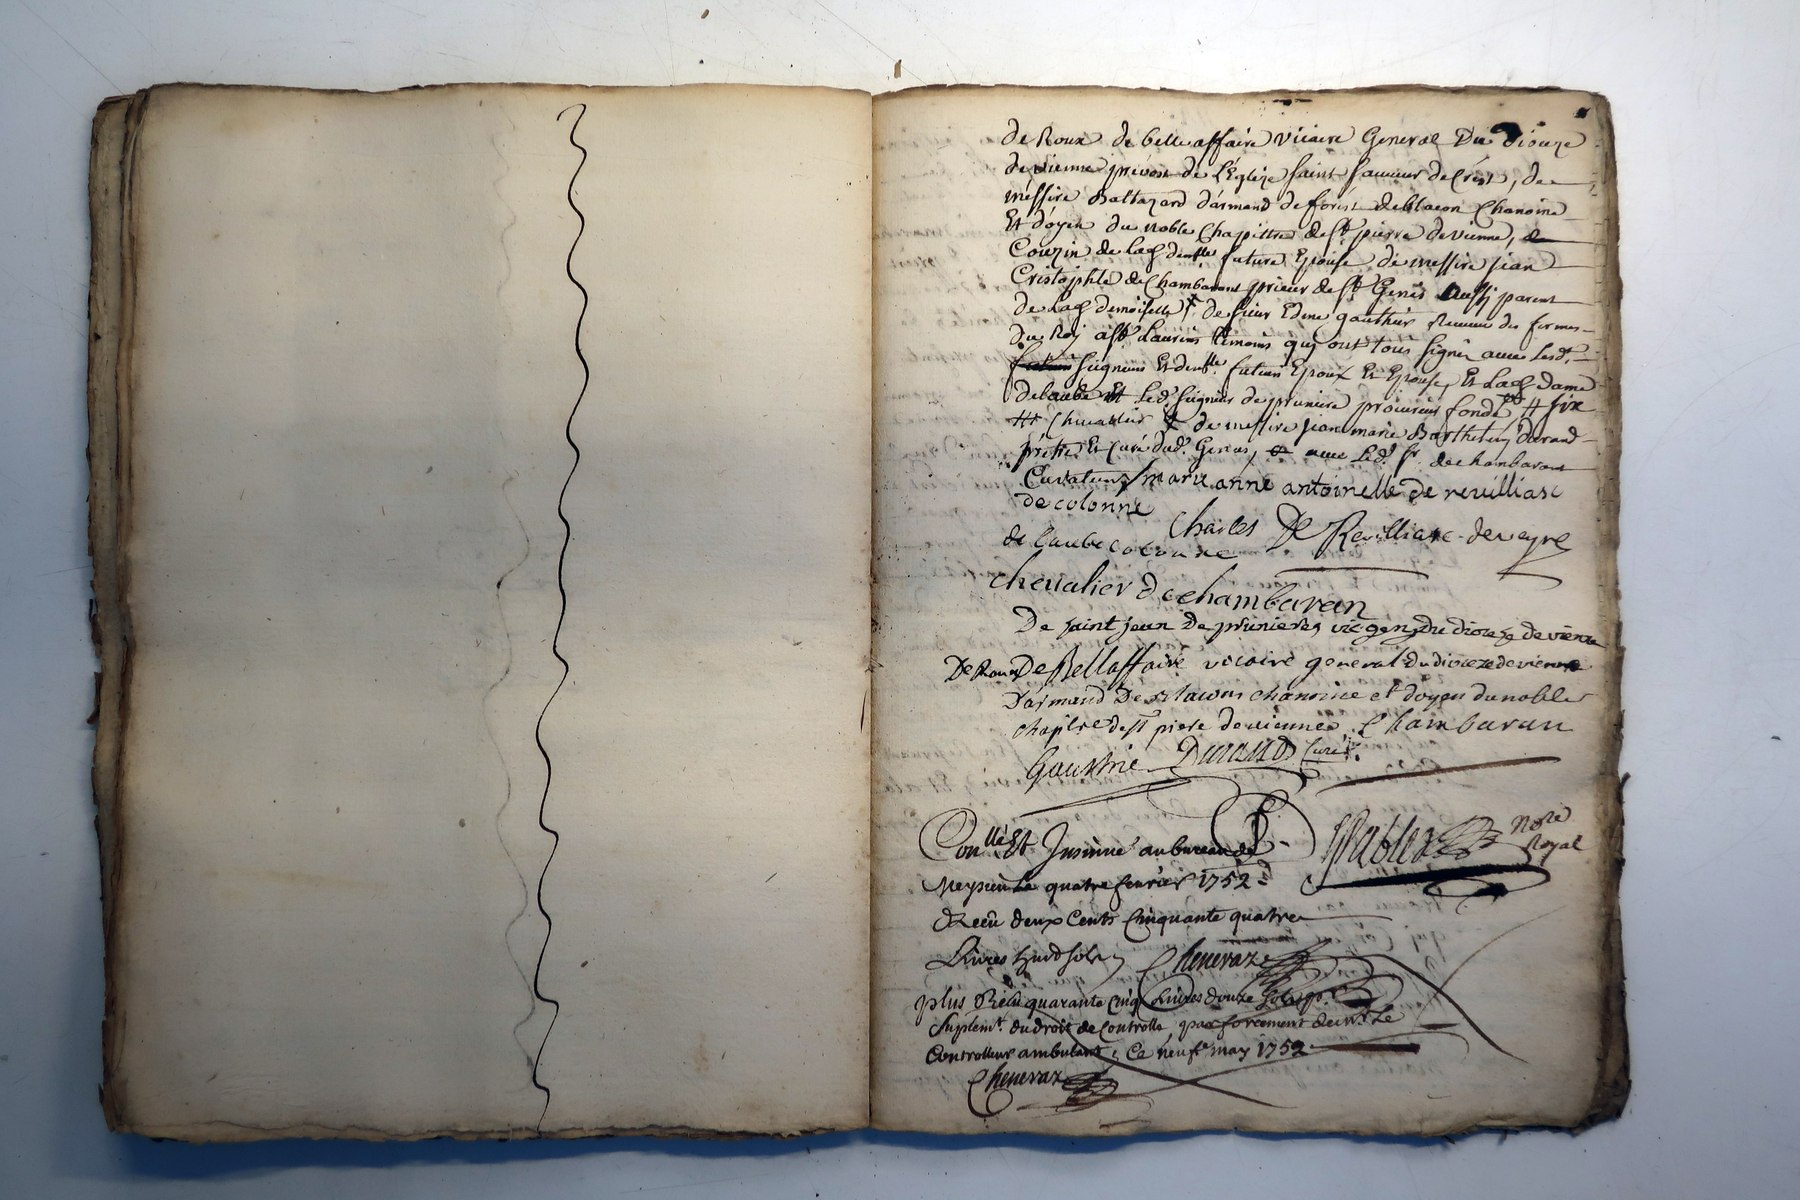 de Roux de belle affaire vicaire General Du dioceze
de vienne prevost de L'Eglize Saint Sauveur de Crest, de
messire Baltazard d'armand de forest de blacon Chanoine
Et doyen du noble Chapittre de st pierre de vienne,
Couzin de lad demlle future Epouse de messire jean
Cristophle de Chambarant prieur de st Genis aussi parent
de lad demoiselle de sieur Edme gauthier Receveur des fermes
du Roy a st Laurens temoins qui ont tous signé avec lesd.
seigneur Et demlle. futurs Epoux Et Epouse, Et Lad Dame
delaube Et Led. seigneur de pruniere procureur fondé
Chevalier de messire jean marie Barthelemy durand
prêtre Et Curé dud. Genis, avec Led. sr. de chambarant
Curateur marie anne antoinelle de revilliasc
de colonne
de laube colonne Charles De Revilliasc de veyne
chevalier de chambaran
De saint jean De prunieres vic gen du dioceze de vienne
De Roux De Bellaffaire vicaire general du dioceze de vienne
Darmand De Blacons chanoine et doyen du noble
chapitre de st piere de vienne Chambaran
Gauthié Durand Curé.
Conllé Et Insinué au bureau de
Meyrieu le quatre fevrier 1752
Nore
Royal
Receu deux Cents Cinquante quatre
Livres huid sols Cheneraz
plus Recu quarante cinq Livres douze sols pr.
suplemt. du droit de Controlle, par forcement de mr. Le
Controlleur ambulant, Ce neufe may 1752
Cheneraz